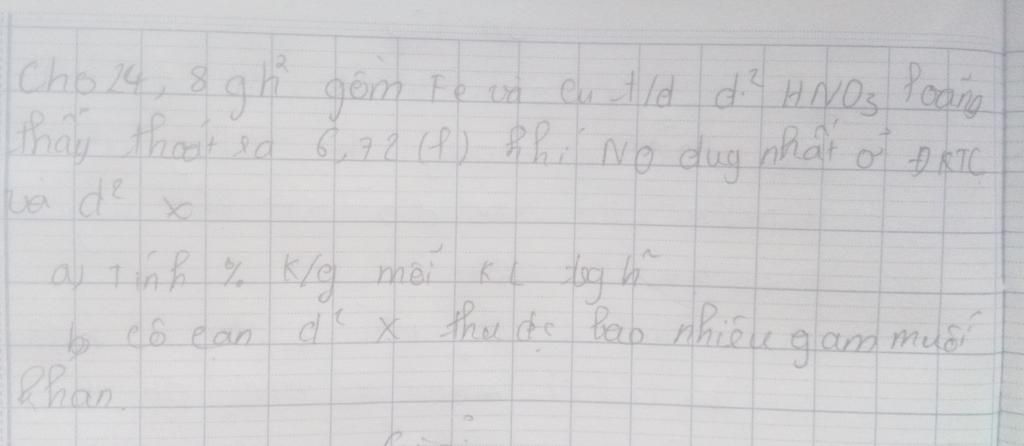 Cho 24, 8 g h² gồm Fe và Cu t/d d² HNO3 loãng
thấy thoát ra 6,72 (l) khí NO duy nhất ở ĐKTC
và d² X
a) Tính % K/g mỗi KL tog h²
b cô cạn d² X thu đc bao nhiêu gam muối
khan.